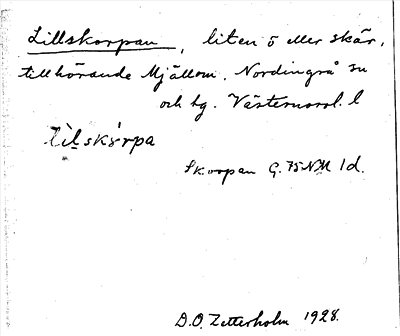 Lillskorpan, liten ö eller skär,
tillhörande Mjällom. Nordingrå sn
och tg. Västernorrl. l
Skorpan G. 75 NM 1d.
D.O. Zetterholm 1928.